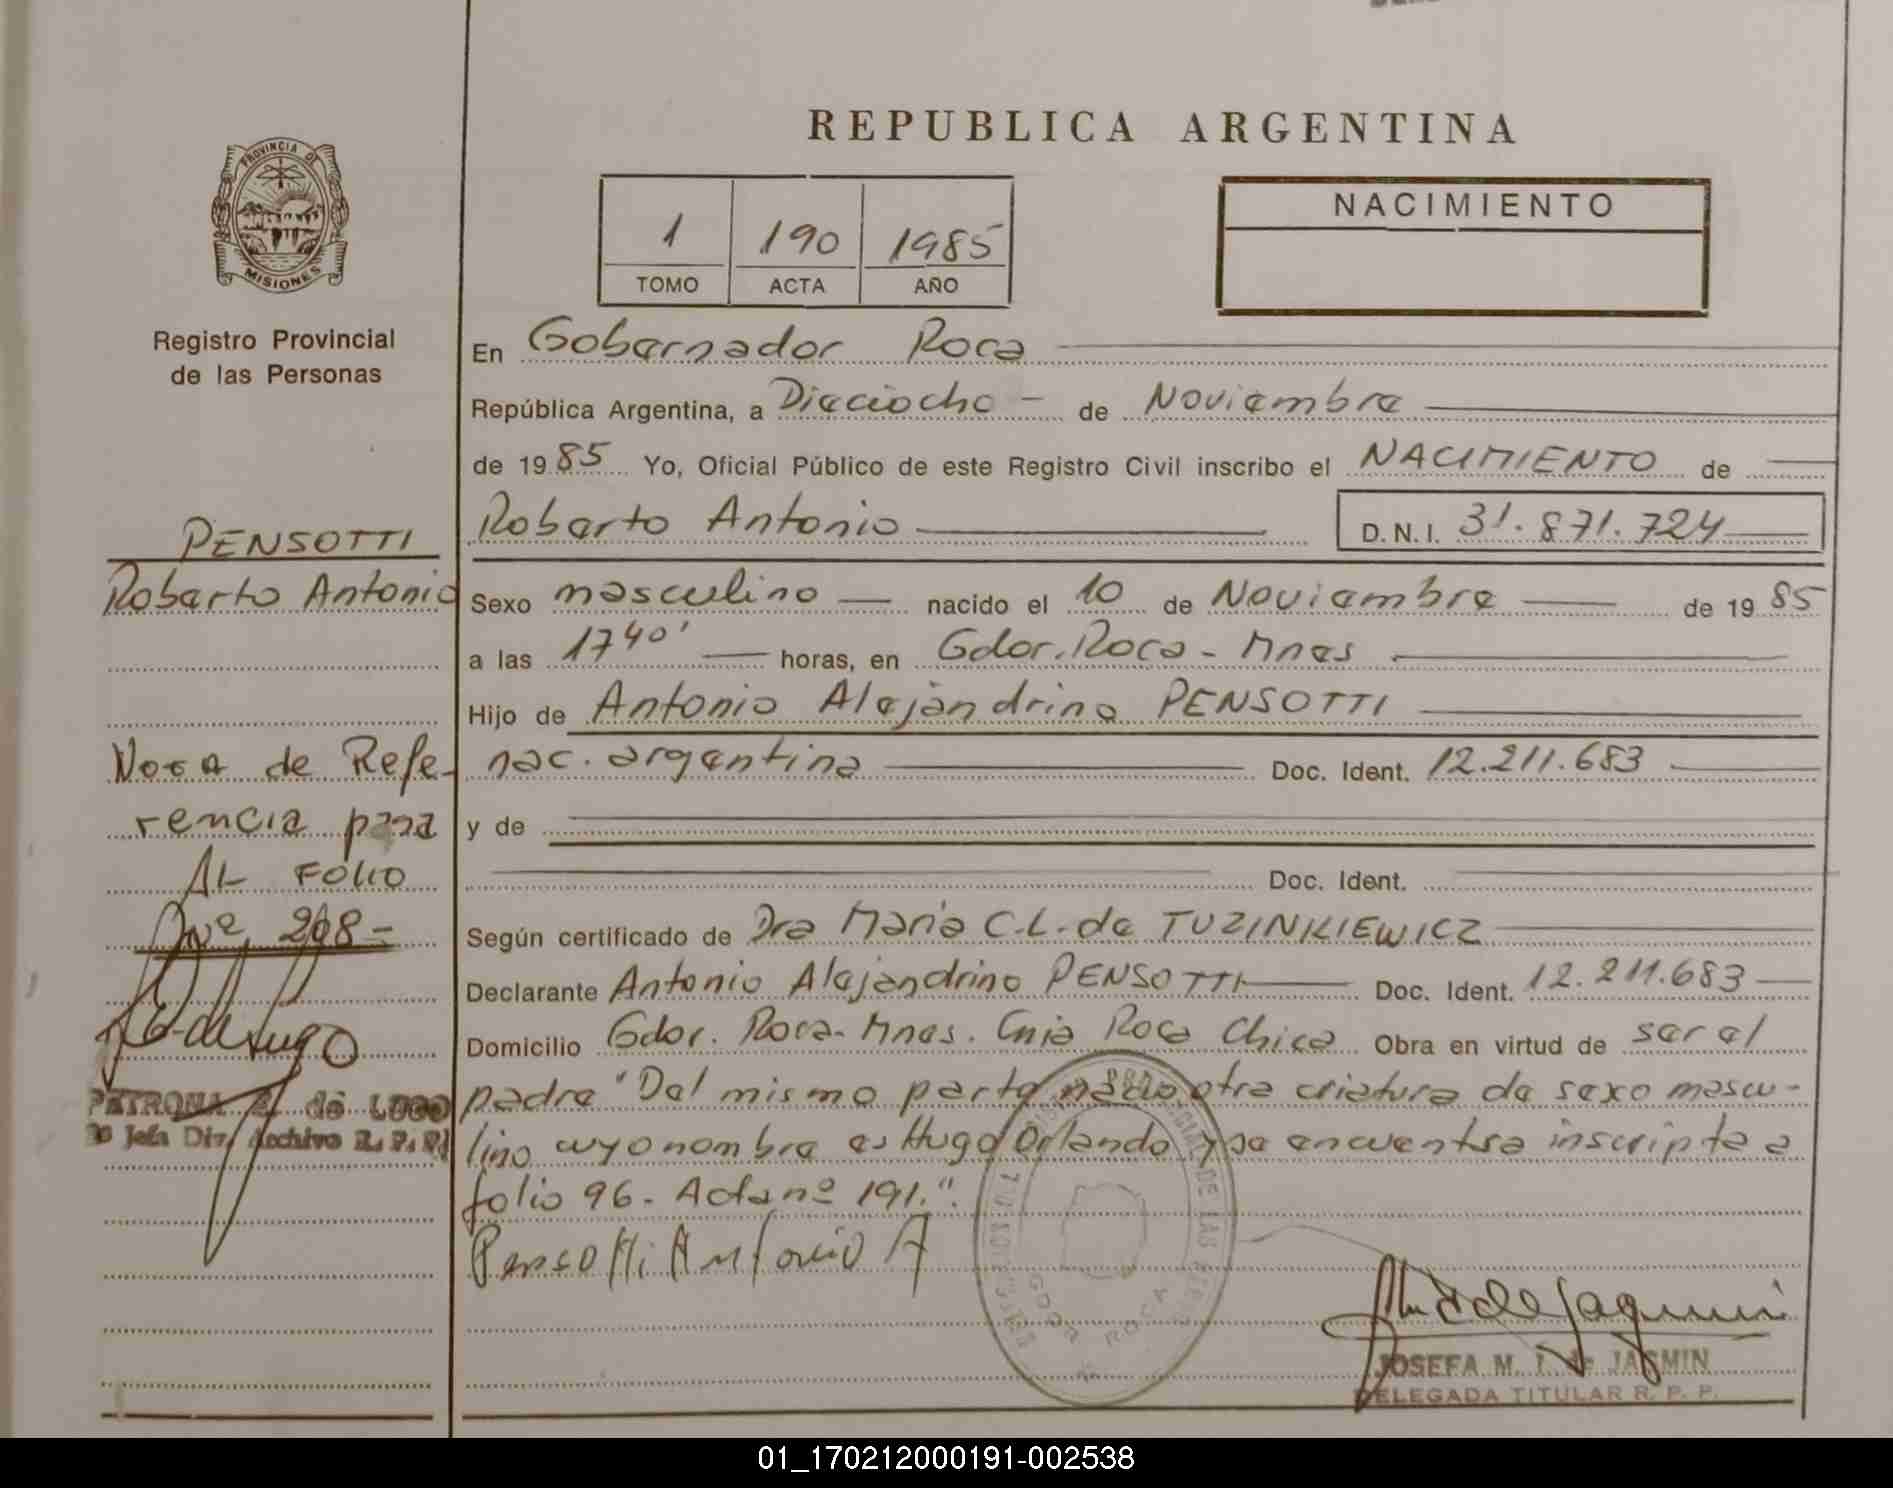 REPUBLICA ARGENTINA
PROVINCIA DE
MISIONES
Registro Provincial
de las Personas
1 190 1985
TOMO ACTA AÑO
NACIMIENTO
En Gobernador Roca
República Argentina, a Dieciocho - de Noviembre
de 1985 Yo, Oficial Público de este Registro Civil inscribo el NACIMIENTO de
Roberto Antonio D.N.I. 31.871.724
Sexo masculino nacido el 10 de Noviembre de 1985
a las 17 40' horas, en Gdor. Roca - Mnes
Hijo de Antonio Alejandrino PENSOTTI
nac. argentina Doc. Ident. 12.211.683
y de
Doc. Ident.
Según certificado de Dra Maria C.L. de TUZINKIEWICZ
Declarante Antonio Alejandrino PENSOTTI Doc. Ident. 12.211.683
Domicilio Gdor. Roca - Mnes. Cnia Roca Chica Obra en virtud de ser el
padre "Del mismo parto nacio otra criatura de sexo mascu-
lino cuyo nombre es Hugo Orlando y se encuentra inscripta a
folio 96 - Acta nº 191."
Pensotti Antonio A
GDOR ROCA
JOSEFA M. I. de JASMIN
DELEGADA TITULAR R. P. P.
PENSOTTI
Roberto Antonio
Nota de Refe-
rencia pasa
AL FOLIO
Nº 208 -
PETRONA de LUGO
Jefa Div. Archivo R. P. P.
01_170212000191-002538